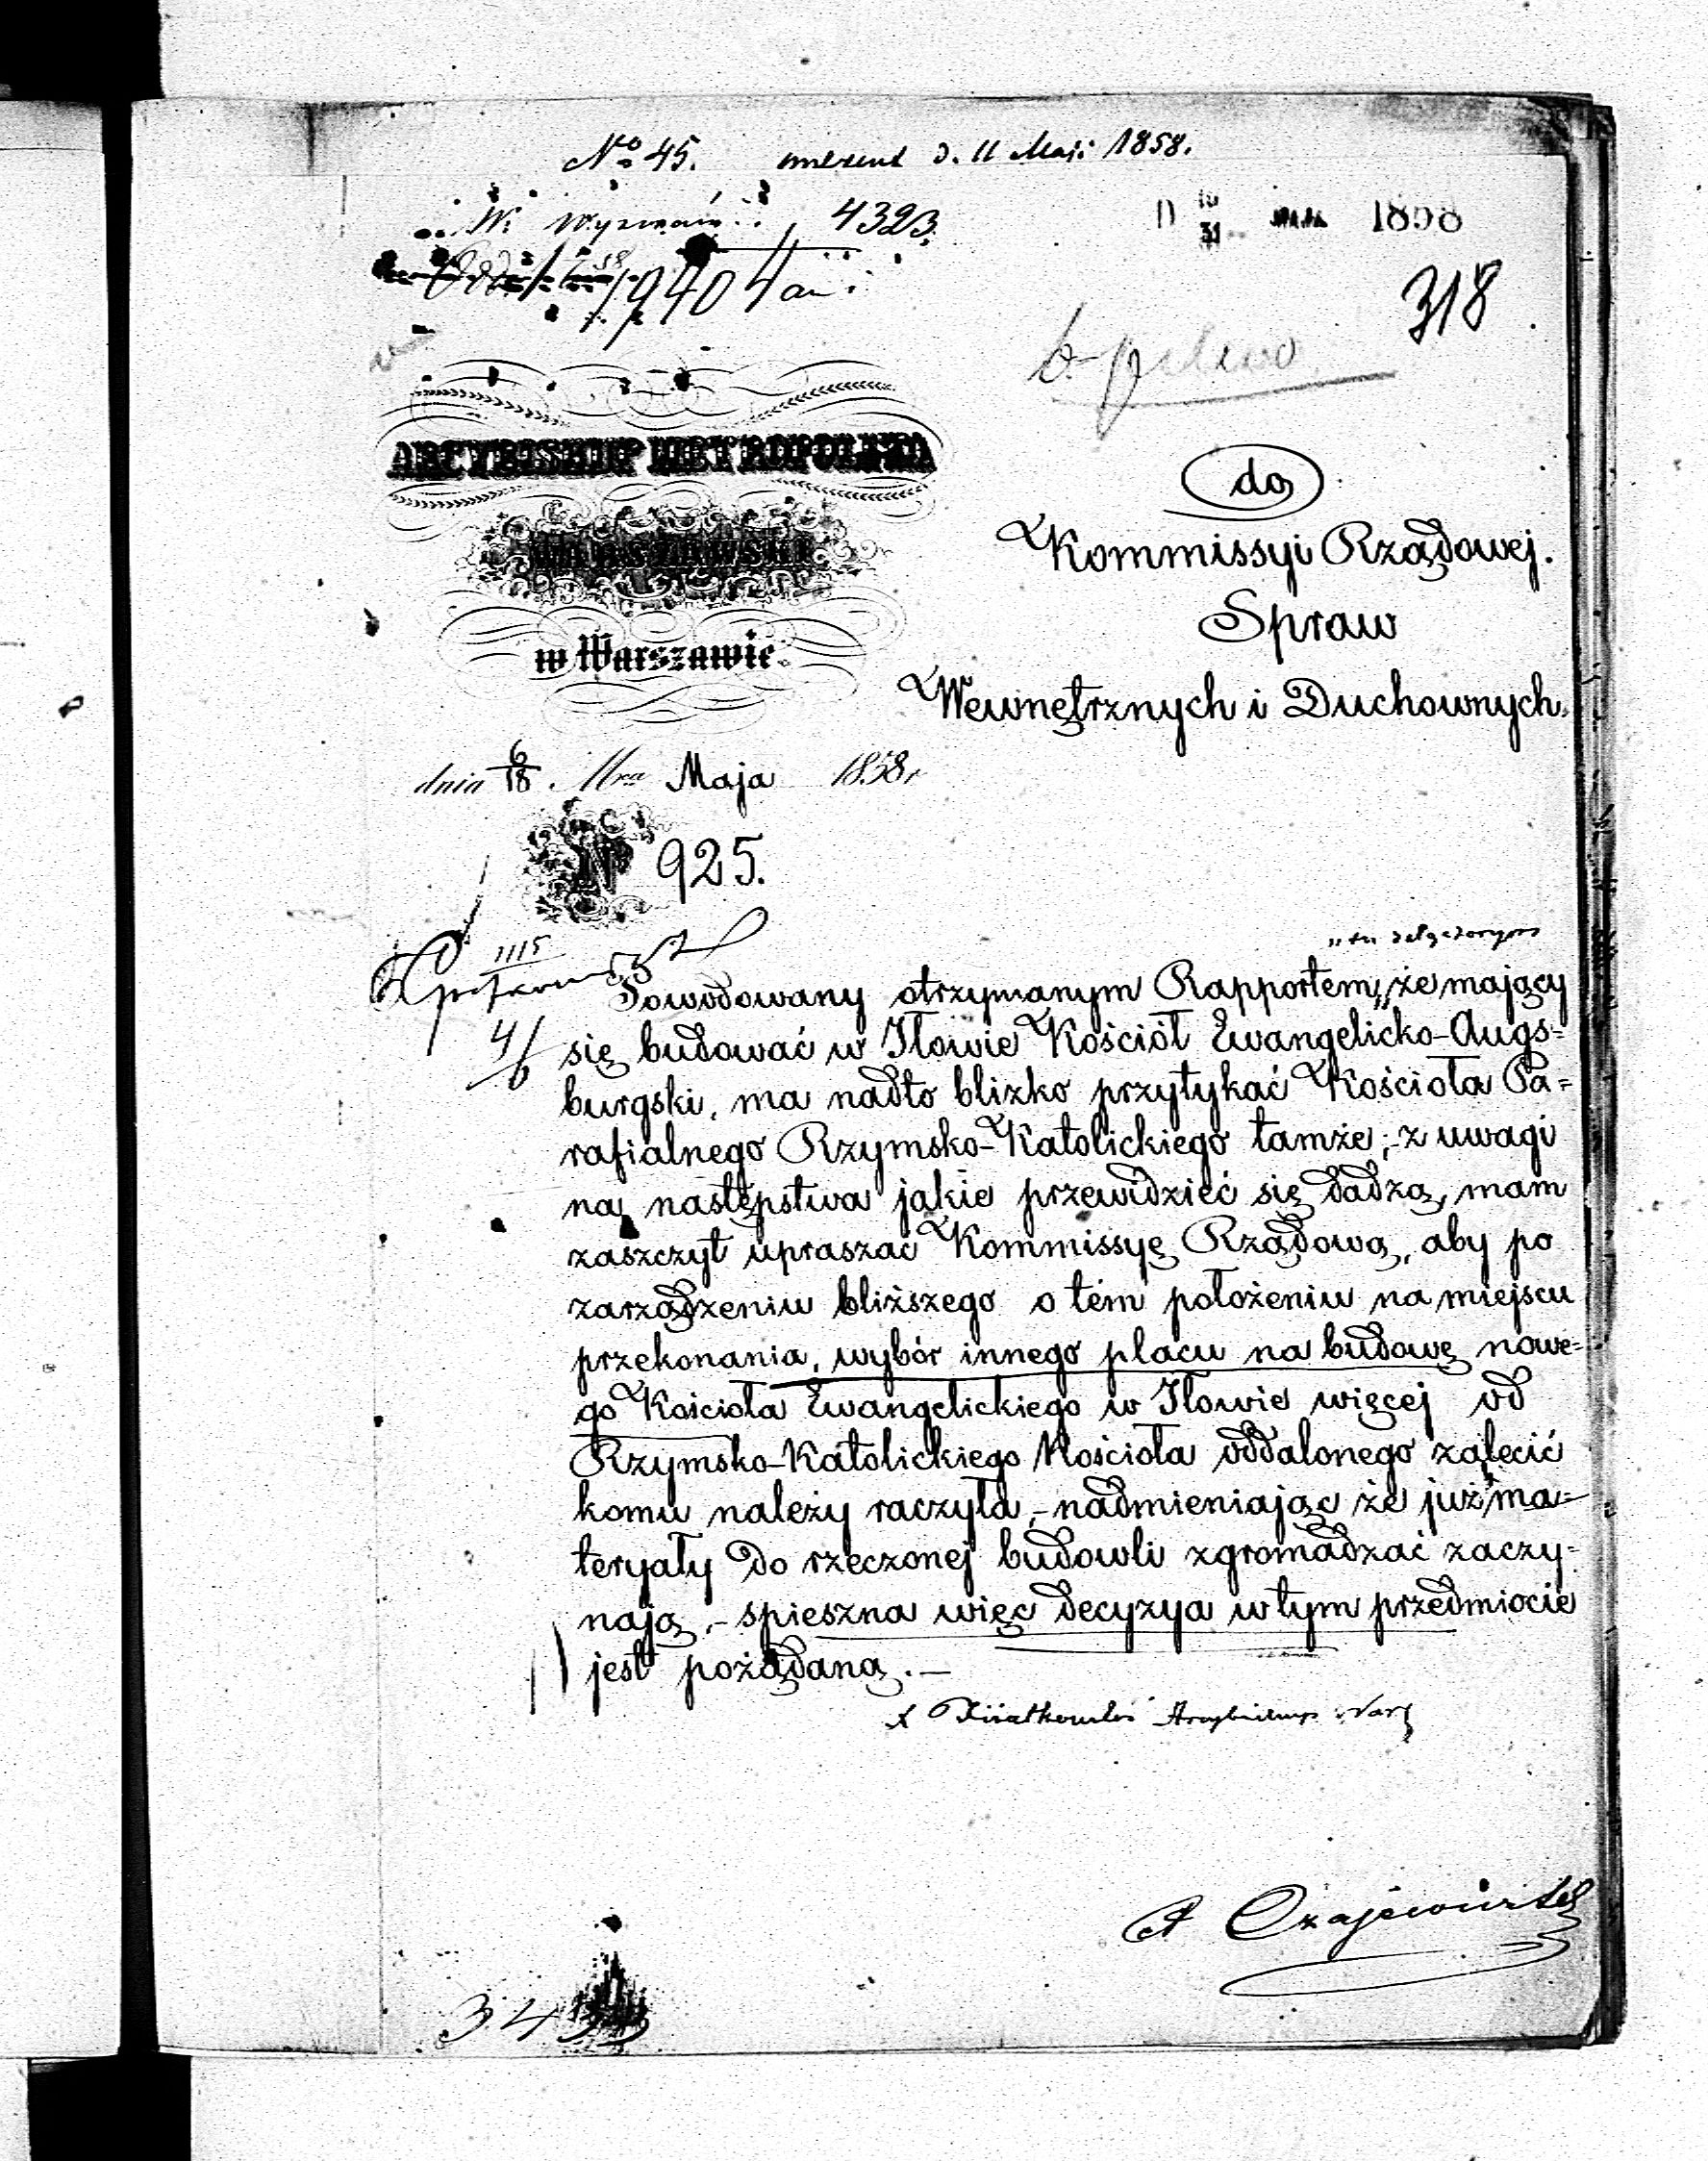 No 45. d. 11 Maji 1858.
W. Wyznań 4323.
19404
1858
318
ARCYBISKUP METROPOLITA
WARSZAWSKI
w Warszawie.
do
Kommissyi Rządowej.
Spraw
Wewnętrznych i Duchownych.
dnia 6/18. Mca Maja 1858 r
No 925.
1115
„tu załączonym
Powodowany otrzymanym Rapportem „że mający
4/6
się budować w Iłowie Kościół Ewangelicko-Augs=
burgski, ma nadto blizko przytykać Kościoła Pa=
rafialnego Rzymsko-Katolickiego tamże; - z uwagi
na następstwa jakie przewidzieć się dadzą, mam
zaszczyt upraszać Kommissyę Rządową, aby po
zarządzeniu bliższego o tém położeniu na miejscu
przekonania, wybór innego placu na budowę nowe=
go Kościoła Ewangelickiego w Iłowie więcej od
Rzymsko-Katolickiego Kościoła oddalonego zalecić
komu należy raczyła, - nadmieniając że już ma=
teryały do rzeczonej budowli zgromadzać zaczy=
nają, - spieszna więc decyzya w tym przedmiocie
jest pożądaną. —
Fijałkowski Arcybiskup Warsz
A Czajewicz